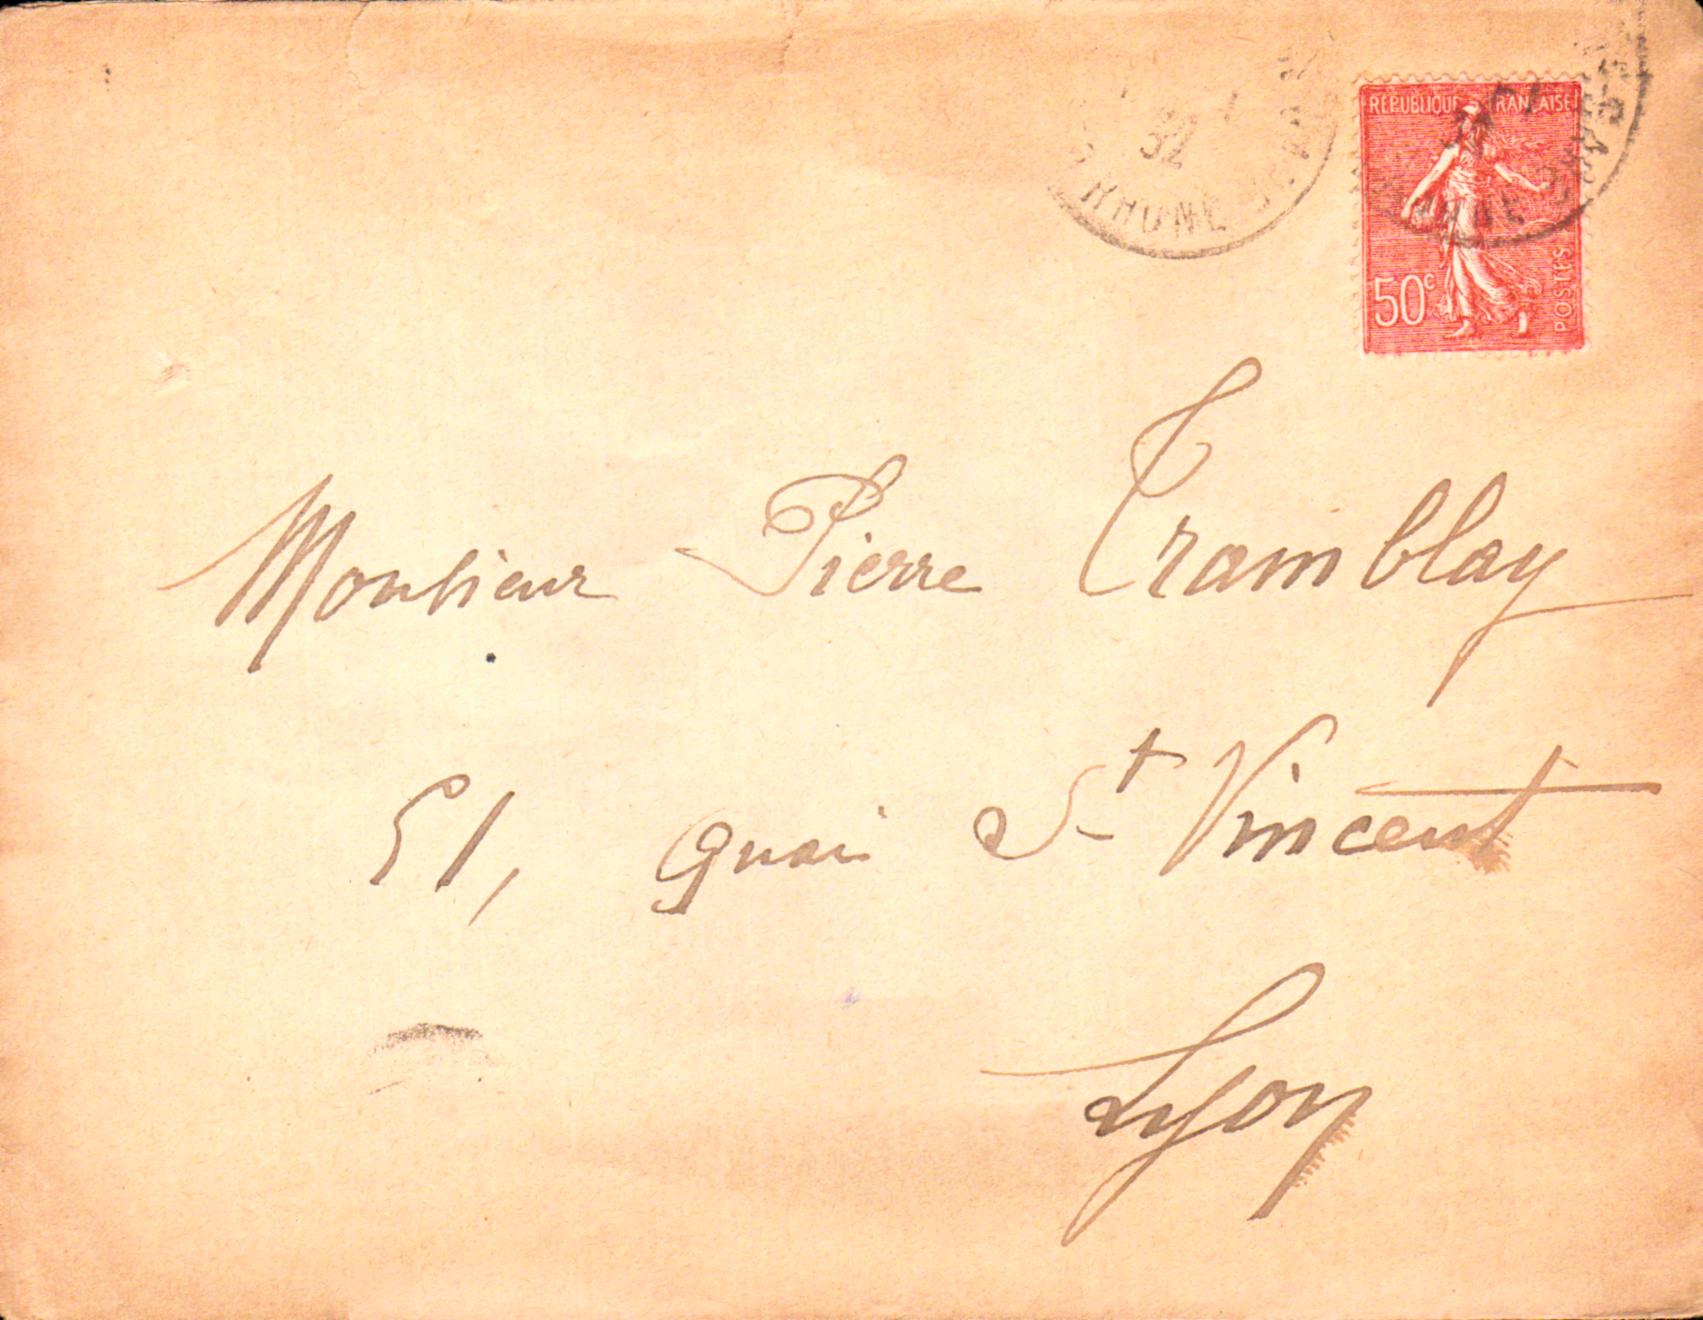 32
RHONE
RÉPUBLIQUE FRANÇAISE
50c
POSTES
Monsieur Pierre Tramblay
51, Quai St Vincent
Lyon